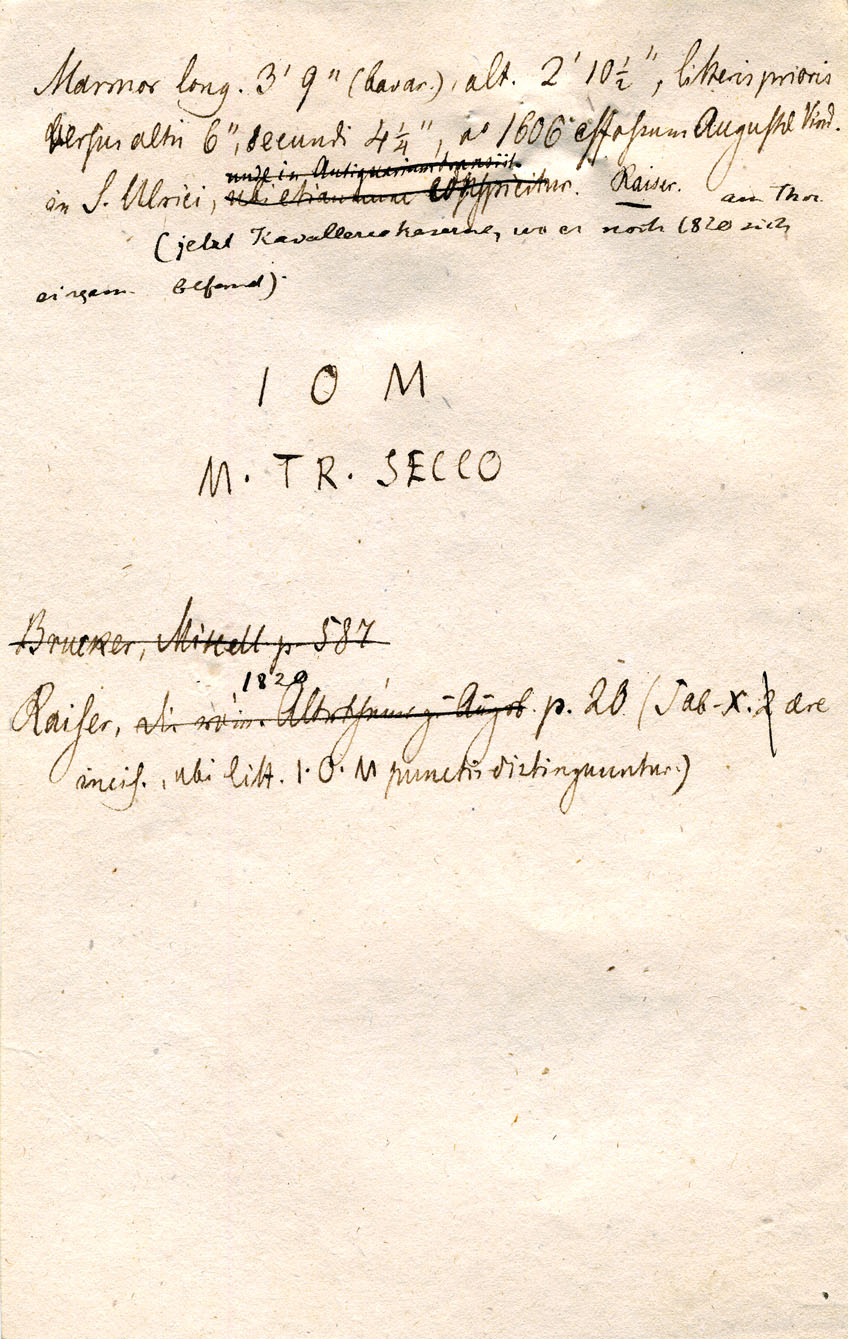 Marmor long. 3' 9" (bavar.), alt. 2' 10½", litteris prioris
versus altis 6", secundi 4¼", aº 1606 effossum Augustæ Vind.
unde in Antiquarium transiit.
in S. Ulrici, ubi etiamnunc conspicitur. Raiser. am Thor
(jetzt Kavalleriekaserne, wo er noch 1820 sich
eingem. befand).
I O M
M. TR. SECCO
Brucker, Miscell p. 587
1820
Raiser, die röm. Alterthümer z. Augsb. p. 20 (Tab. X. 2 ære
incis., ubi litt. I. O. M punctis distinguuntur.)